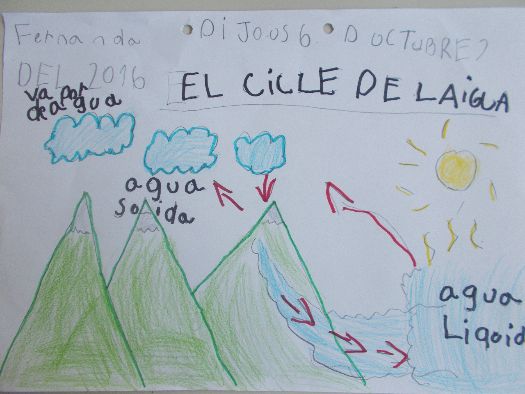 Fernanda • DIJOUS 6 • D OCTUBRE
DEL 2016
EL CICLE DE LAIGUA
vapor
de agua
agua
solida
agua
Liqoid